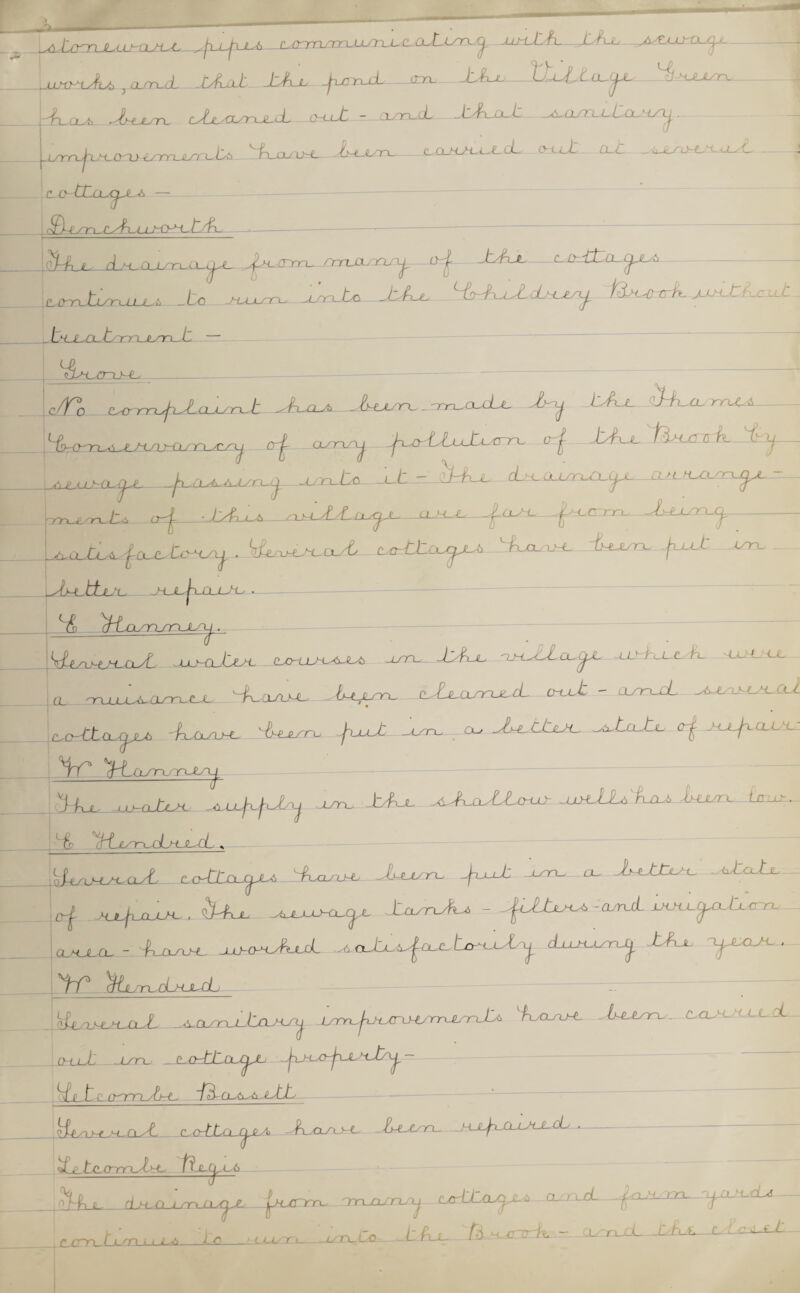 stoneware pipes communicating with the sewage
works, and that the pond on the Village Green
has been cleaned out - and that sanitary
improvements have been carried out at several
cottages —
Denchworth
The drainage from many of the cottages
continues to run into the Childrey Brook without
treatment —
Grove
No complaint has been made by the Thames
Conservancy of any pollution of the Brook by
sewage passing into it - The drainage arrange-
ments of this village are far from being
satisfactory. Several cottages have been put in
better repair.
E Hanney.
Several water courses in the village which were
a nuisance have been cleaned out - and several
cottages have been put in a better state of repair -
W Hanney
The water supply in the shallow wells has been low.
E Hendred.
Several cottages have been put in a better state
of repair. The sewage tanks - filters - and irrigation
area - have worked satisfactorily during the year.
W Hendred
Several sanitary improvements have been carried
out in cottage property -
Letcombe Bassett
Several cottages have been repaired.
Letcombe Regis
The drainage from many cottages and farm yards
continues to run into the Brook - and the closet